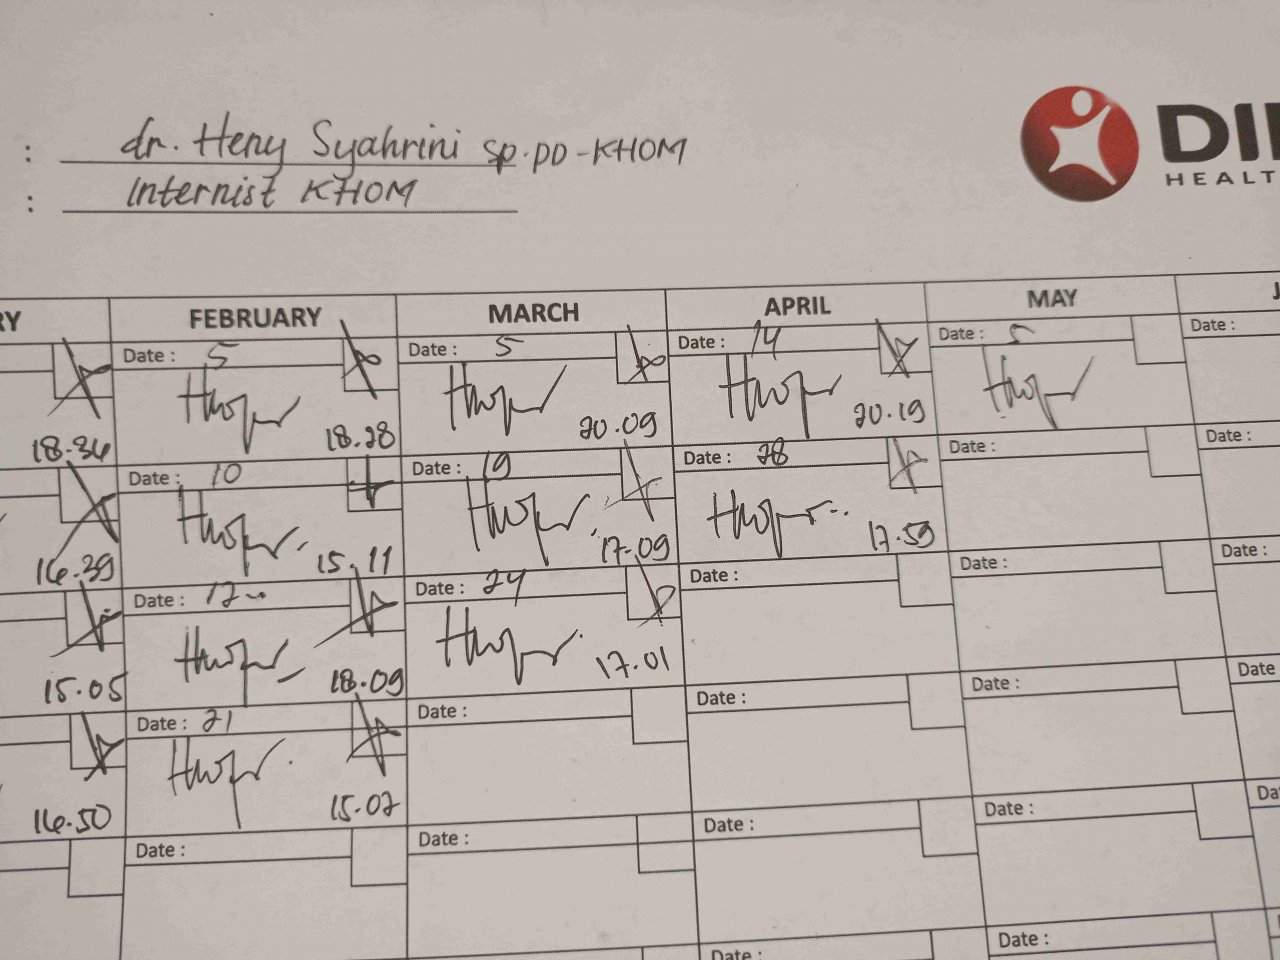 : dr. Heny Syahrini Sp.PD-KHOM
: Internist KHOM
DI
HEALT
RY FEBRUARY MARCH APRIL MAY J
Date : 5 Date : 5 Date : 14 Date : 5 Date :
18.34 18.28 20.09 20.19
Date : 10 Date : 19 Date : 28 Date : Date :
16.39 15.11 17.09 17.59
Date : 12 Date : 24 Date : Date : Date :
15.05 18.09 17.01
Date : 21 Date : Date : Date : Date
16.50 15.07
Date : Date : Date : Date : Da
Date : Date :